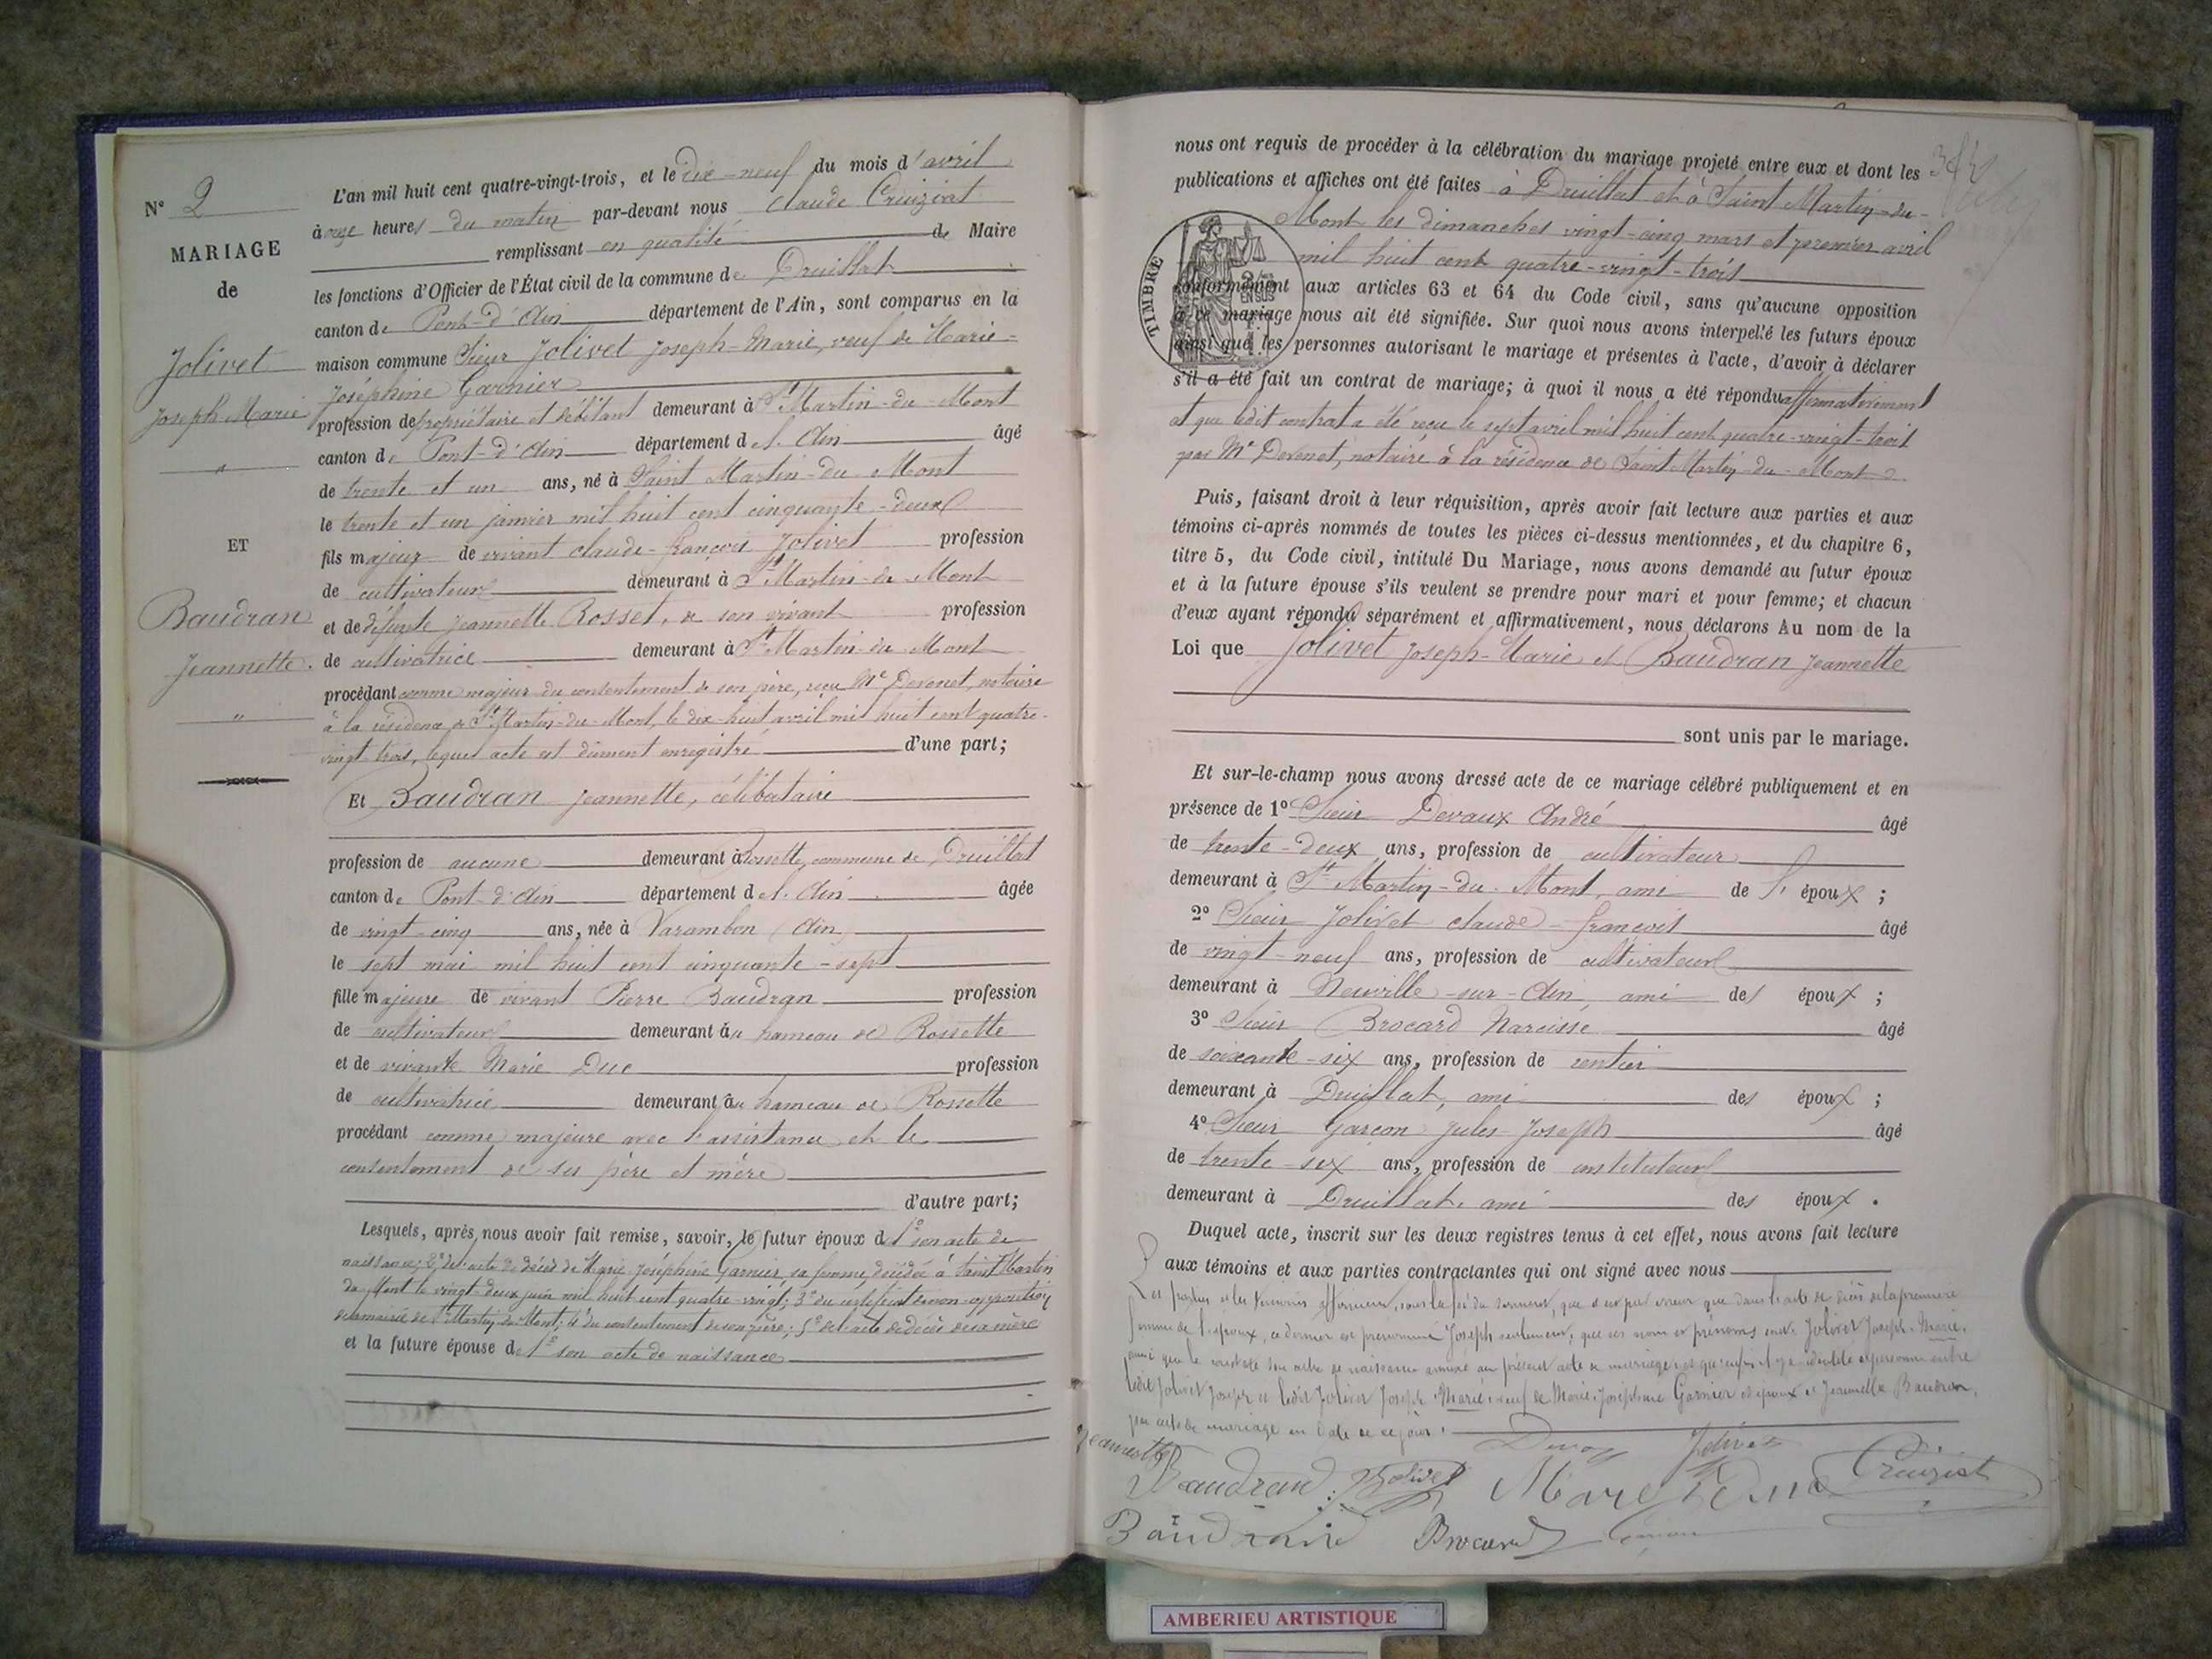 N° 2
MARIAGE
de
Jolivet
Joseph-Marie
"
ET
Baudran
Jeannette.
"
L'an mil huit cent quatre-vingt-trois, et le dix-neuf du mois d'avril
à onze heures du matin par-devant nous Claude Cruizint
remplissant en qualité de Maire
les fonctions d'Officier de l'État civil de la commune de Druillat
canton de Pont-d'Ain département de l'Ain, sont comparus en la
maison commune Sieur Jolivet Joseph-Marie, veuf de Marie-
Joséphine Garnier
profession de propriétaire et débitant demeurant à St Martin-du-Mont
canton de Pont-d'Ain département de l'Ain âgé
de trente et un ans, né à Saint Martin-du Mont
le trente et un janvier mil huit cent cinquante-deux
fils majeur de vivant Claude-François Jolivet profession
de cultivateur demeurant à St Martin-du-Mont
et de défunte Jeannette Rosset, de son vivant profession
de cultivatrice demeurant à St Martin-du Mont
procédant comme majeur du consentement de son père, reçu Me Devenet, notaire
à la résidence de St Martin-du-Mont, le dix-huit avril mil huit cent quatre-
vingt trois, lequel acte est dûment enregistré d'une part;
Et Baudran Jeannette, célibataire
profession de aucune demeurant à Rossette, commune de Druillat
canton de Pont-d'Ain département de l'Ain âgée
de vingt-cinq ans, née à Varambon (Ain)
le sept mai mil huit cent cinquante-sept
fille majeure de vivant Pierre Baudran profession
de cultivateur demeurant au hameau de Rossette
et de vivante Marie Duc profession
de cultivatrice demeurant au hameau de Rossette
procédant comme majeure avec l'assistance et le
consentement de ses père et mère
d'autre part;
Lesquels, après nous avoir fait remise, savoir, le futur époux de 1° son acte de
naissance; 2° de l'acte de décès de Marie Joséphine Garnier, sa femme, décédée à Saint Martin
du Mont le vingt-deux juin mil huit cent quatre-vingt; 3° du certificat de non-opposition
de la mairie de St Martin-du-Mont; 4° du consentement de son père; 5° de l'acte de décès de sa mère
et la future épouse de 1° son acte de naissance
nous ont requis de procéder à la célébration du mariage projeté entre eux et dont les
publications et affiches ont été faites à Druillat et à Saint Martin-du-
Mont les dimanches vingt-cinq mars et premier avril
mil huit cent quatre-vingt-trois
TIMBRE
conformément aux articles 63 et 64 du Code civil, sans qu'aucune opposition
à ce mariage nous ait été signifiée. Sur quoi nous avons interpellé les futurs époux
ainsi que les personnes autorisant le mariage et présentes à l'acte, d'avoir à déclarer
s'il a été fait un contrat de mariage; à quoi il nous a été répondu affirmativement
et que ledit contrat a été reçu le sept avril mil huit cent quatre-vingt-trois
par Me Devenet, notaire à la résidence de Saint Martin-du-Mont
Puis, faisant droit à leur réquisition, après avoir fait lecture aux parties et aux
témoins ci-après nommés de toutes les pièces ci-dessus mentionnées, et du chapitre 6,
titre 5, du Code civil, intitulé Du Mariage, nous avons demandé au futur époux
et à la future épouse s'ils veulent se prendre pour mari et pour femme; et chacun
d'eux ayant répondu séparément et affirmativement, nous déclarons Au nom de la
Loi que Jolivet Joseph-Marie et Baudran Jeannette
sont unis par le mariage.
Et sur-le-champ nous avons dressé acte de ce mariage célébré publiquement et en
présence de 1° Sieur Devaux André âgé
de trente-deux ans, profession de cultivateur
demeurant à St Martin-du-Mont, ami de l'époux;
2° Sieur Jolivet Claude-François âgé
de vingt-neuf ans, profession de cultivateur
demeurant à Neuville-sur-Ain, ami des époux;
3° Sieur Brocard Narcisse âgé
de soixante-six ans, profession de rentier
demeurant à Druillat, ami des époux;
4° Sieur Garçon Jules-Joseph âgé
de trente-six ans, profession de instituteur
demeurant à Druillat, ami des époux.
Duquel acte, inscrit sur les deux registres tenus à cet effet, nous avons fait lecture
aux témoins et aux parties contractantes qui ont signé avec nous
Les parties et les témoins affirment, sous la foi du serment, que c'est par erreur que dans l'acte de décès de la première
femme de l'époux, ce dernier est prénommé Joseph seulement, que ses nom et prénoms sont Jolivet Joseph-Marie,
ainsi que le constate son acte de naissance annexé au présent acte de mariage et qu'enfin il y a identité de personne entre
ledit Jolivet Joseph et ledit Jolivet Joseph-Marie, veuf de Marie-Joséphine Garnier et époux de Jeannette Baudran,
par acte de mariage en date de ce jour.
Jeannette
Baudran Jolivet Devaux Jolivet
Marie Duc Cruizint
Baudrand Brocard
AMBERIEU ARTISTIQUE